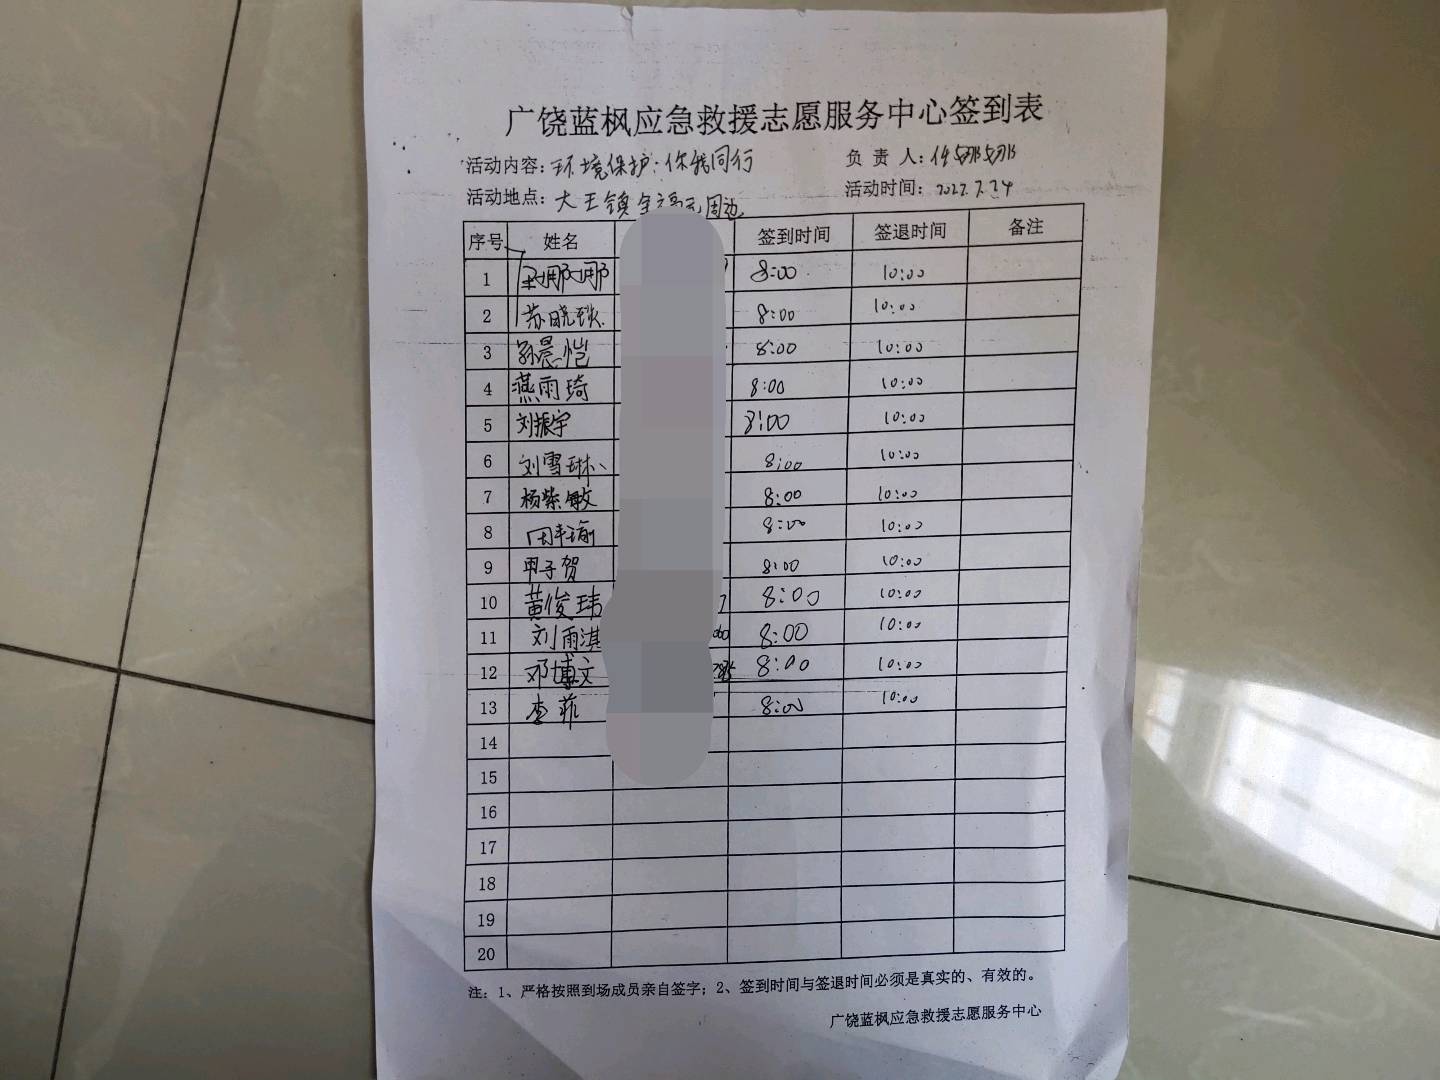 广饶蓝枫应急救援志愿服务中心签到表
活动内容：环境保护：你我同行 负 责 人：
活动地点：大王镇 周边 活动时间：2022.7.24
序号 姓名 签到时间 签退时间 备注
1 8:00 10:00
2 苏晓 8:00 10:00
3 孙晨恺 8:00 10:00
4 燕雨琦 8:00 10:00
5 刘振宇 8:00 10:00
6 刘雪琳 8:00 10:00
7 杨紫敏 8:00 10:00
8 8:00 10:00
9 子贺 8:00 10:00
10 黄俊玮 8:00 10:00
11 刘雨淇 8:00 10:00
12 邓博文 8:00 10:00
13 李菲 8:00 10:00
14
15
16
17
18
19
20
注：1、严格按照到场成员亲自签字；2、签到时间与签退时间必须是真实的、有效的。
广饶蓝枫应急救援志愿服务中心